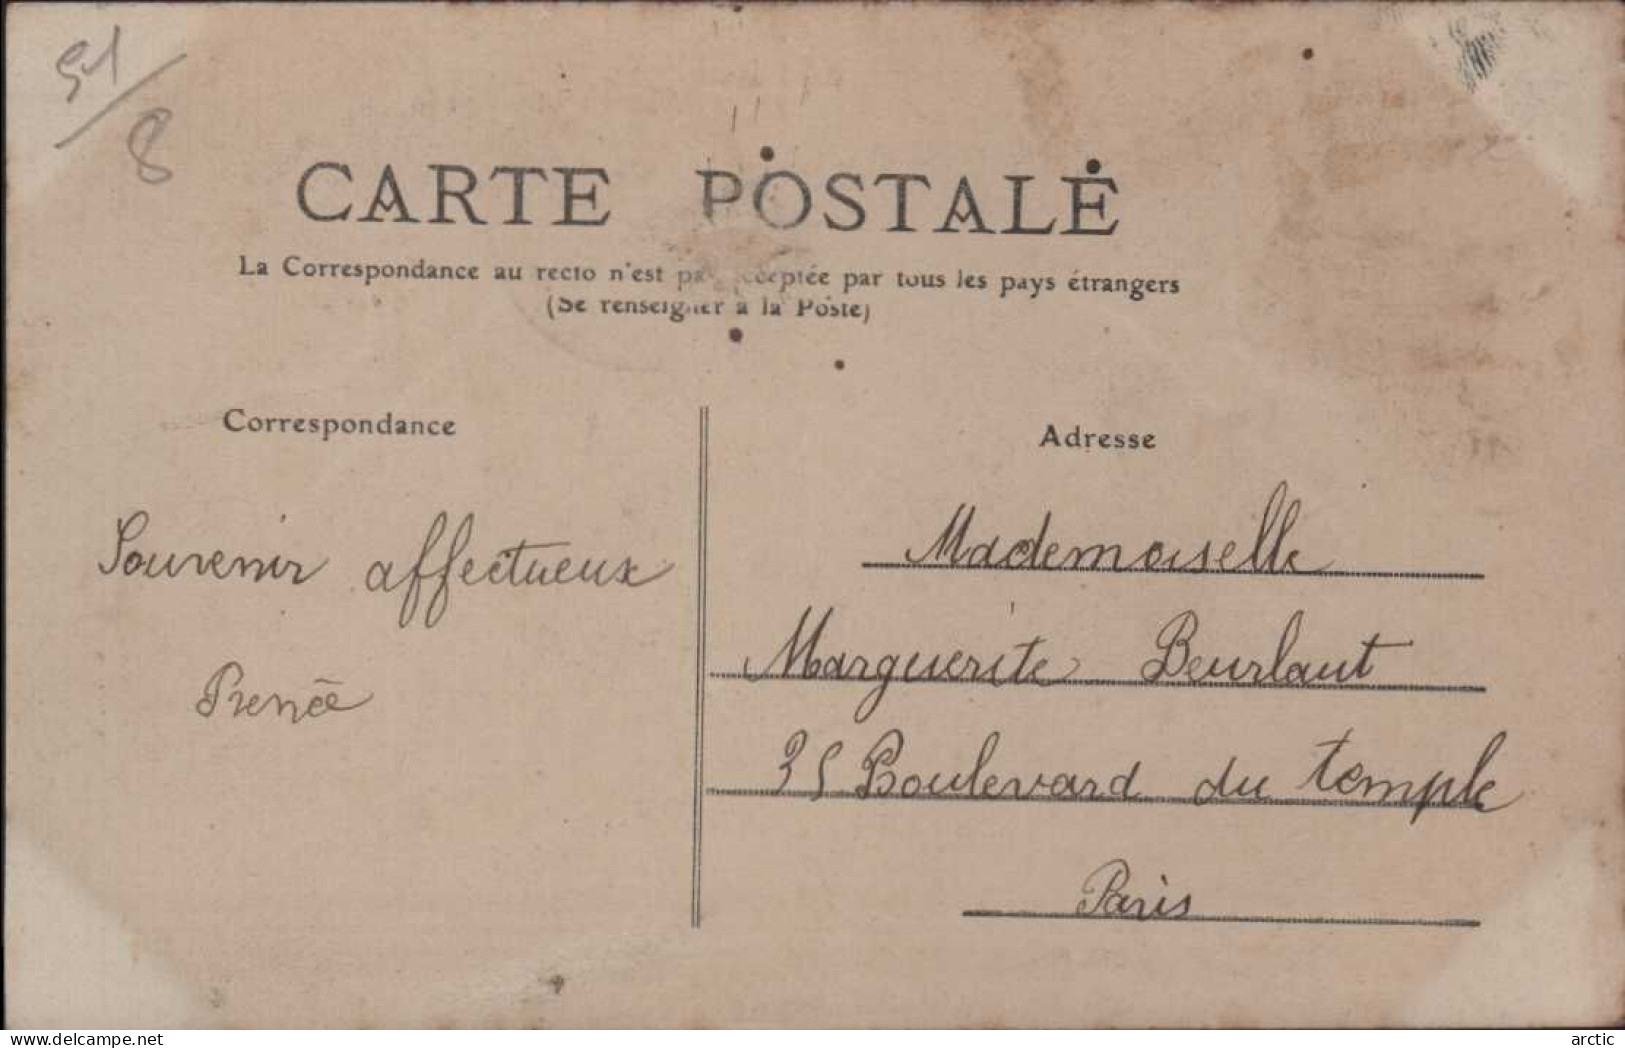 91/8
CARTE POSTALE
La Correspondance au recto n'est pas acceptée par tous les pays étrangers
(Se renseigner à la Poste)
Correspondance
Souvenir affectueux
Renée
Adresse
Mademoiselle
Marguerite Beurlaut
35 Boulevard du temple
Paris
delcampe.net
arctic